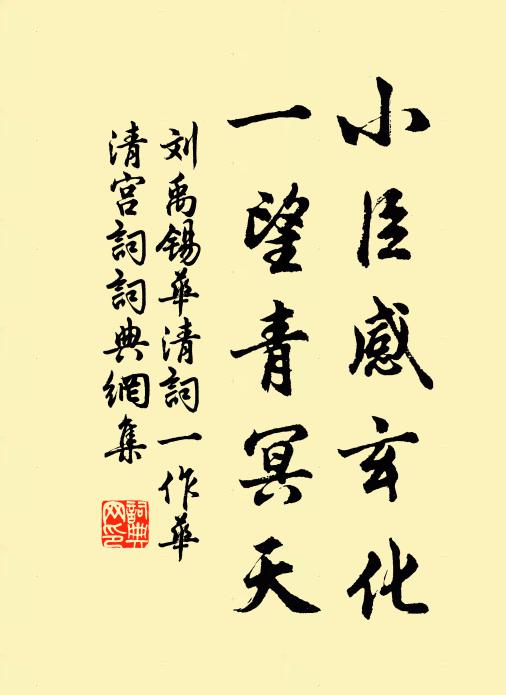 小臣感玄化
一望青冥天
刘禹锡华清詞一作华
清宫詞詞典網集
詞典网印